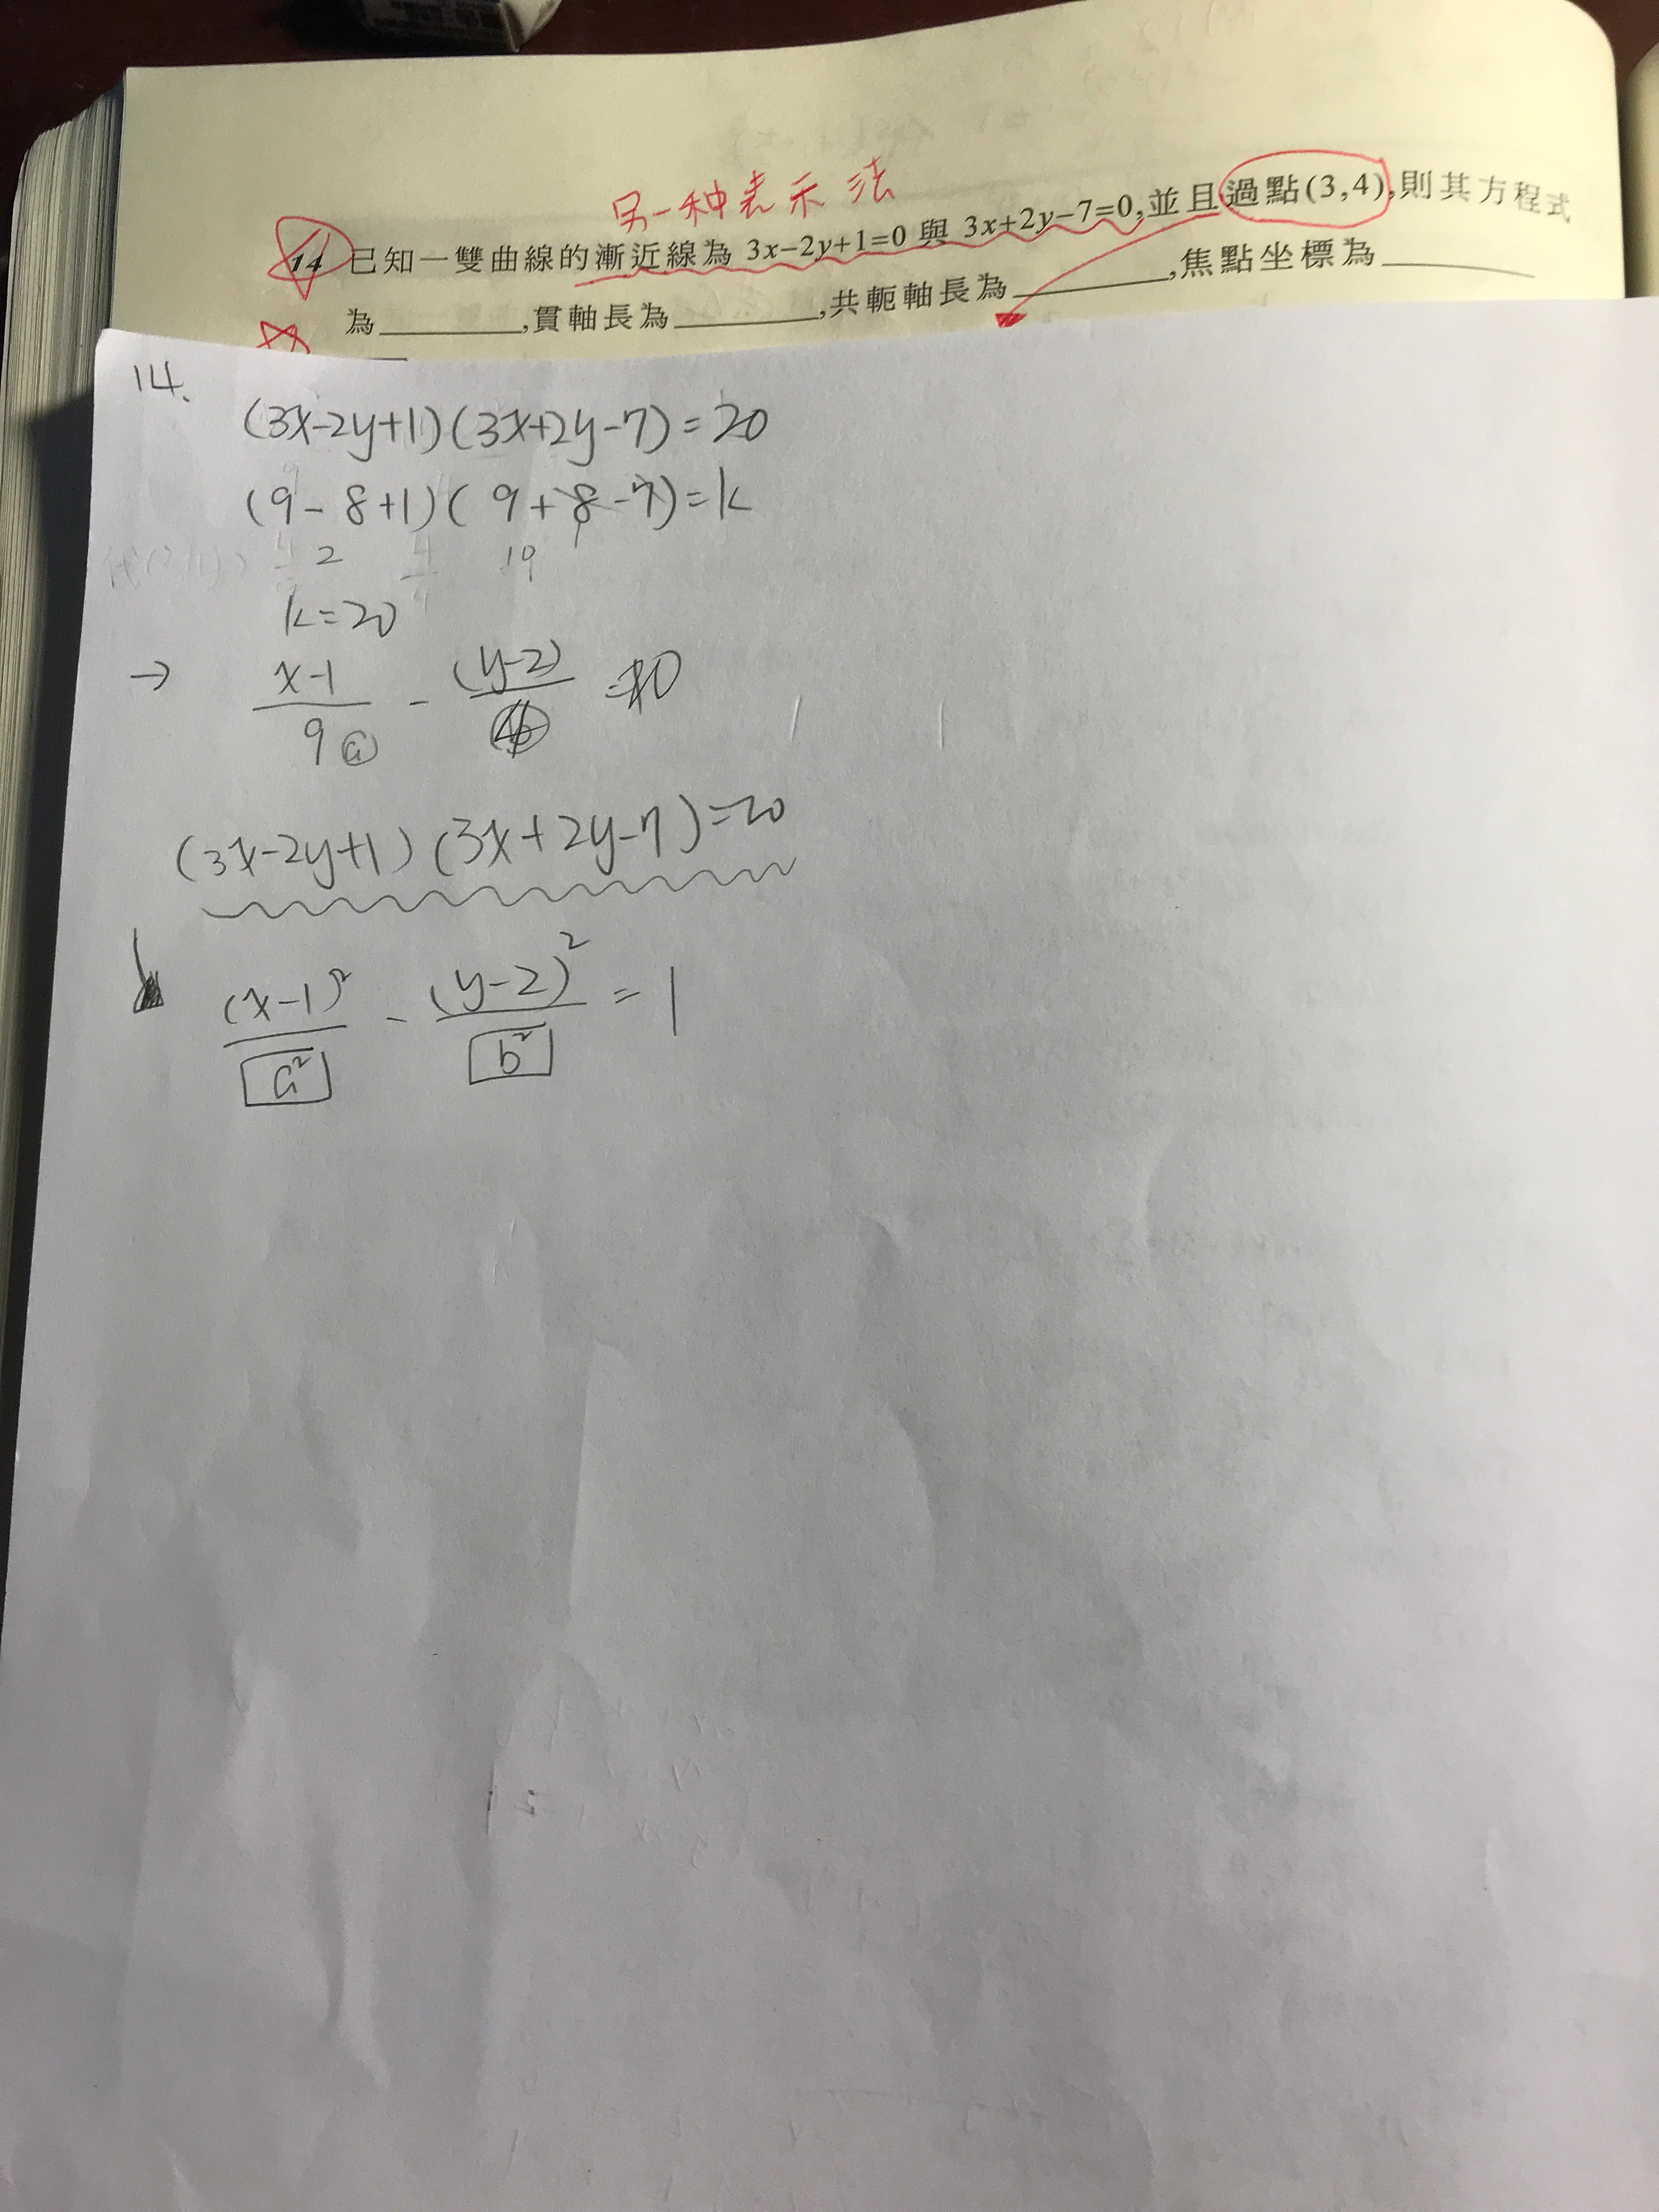 另一种表示法
14 已知一雙曲線的漸近線為 3x−2y+1=0 與 3x+2y−7=0,並且過點(3,4),則其方程式
為________,貫軸長為________,共軛軸長為________,焦點坐標為________
14.
(3x-2y+1)(3x+2y-7)=20
(9-8+1)(9+8-7)=k
2 10
k=20
→ x-1/9a - (y-2)
(3x-2y+1)(3x+2y-7)=20
(x-1)²/a² - (y-2)²/b² = 1